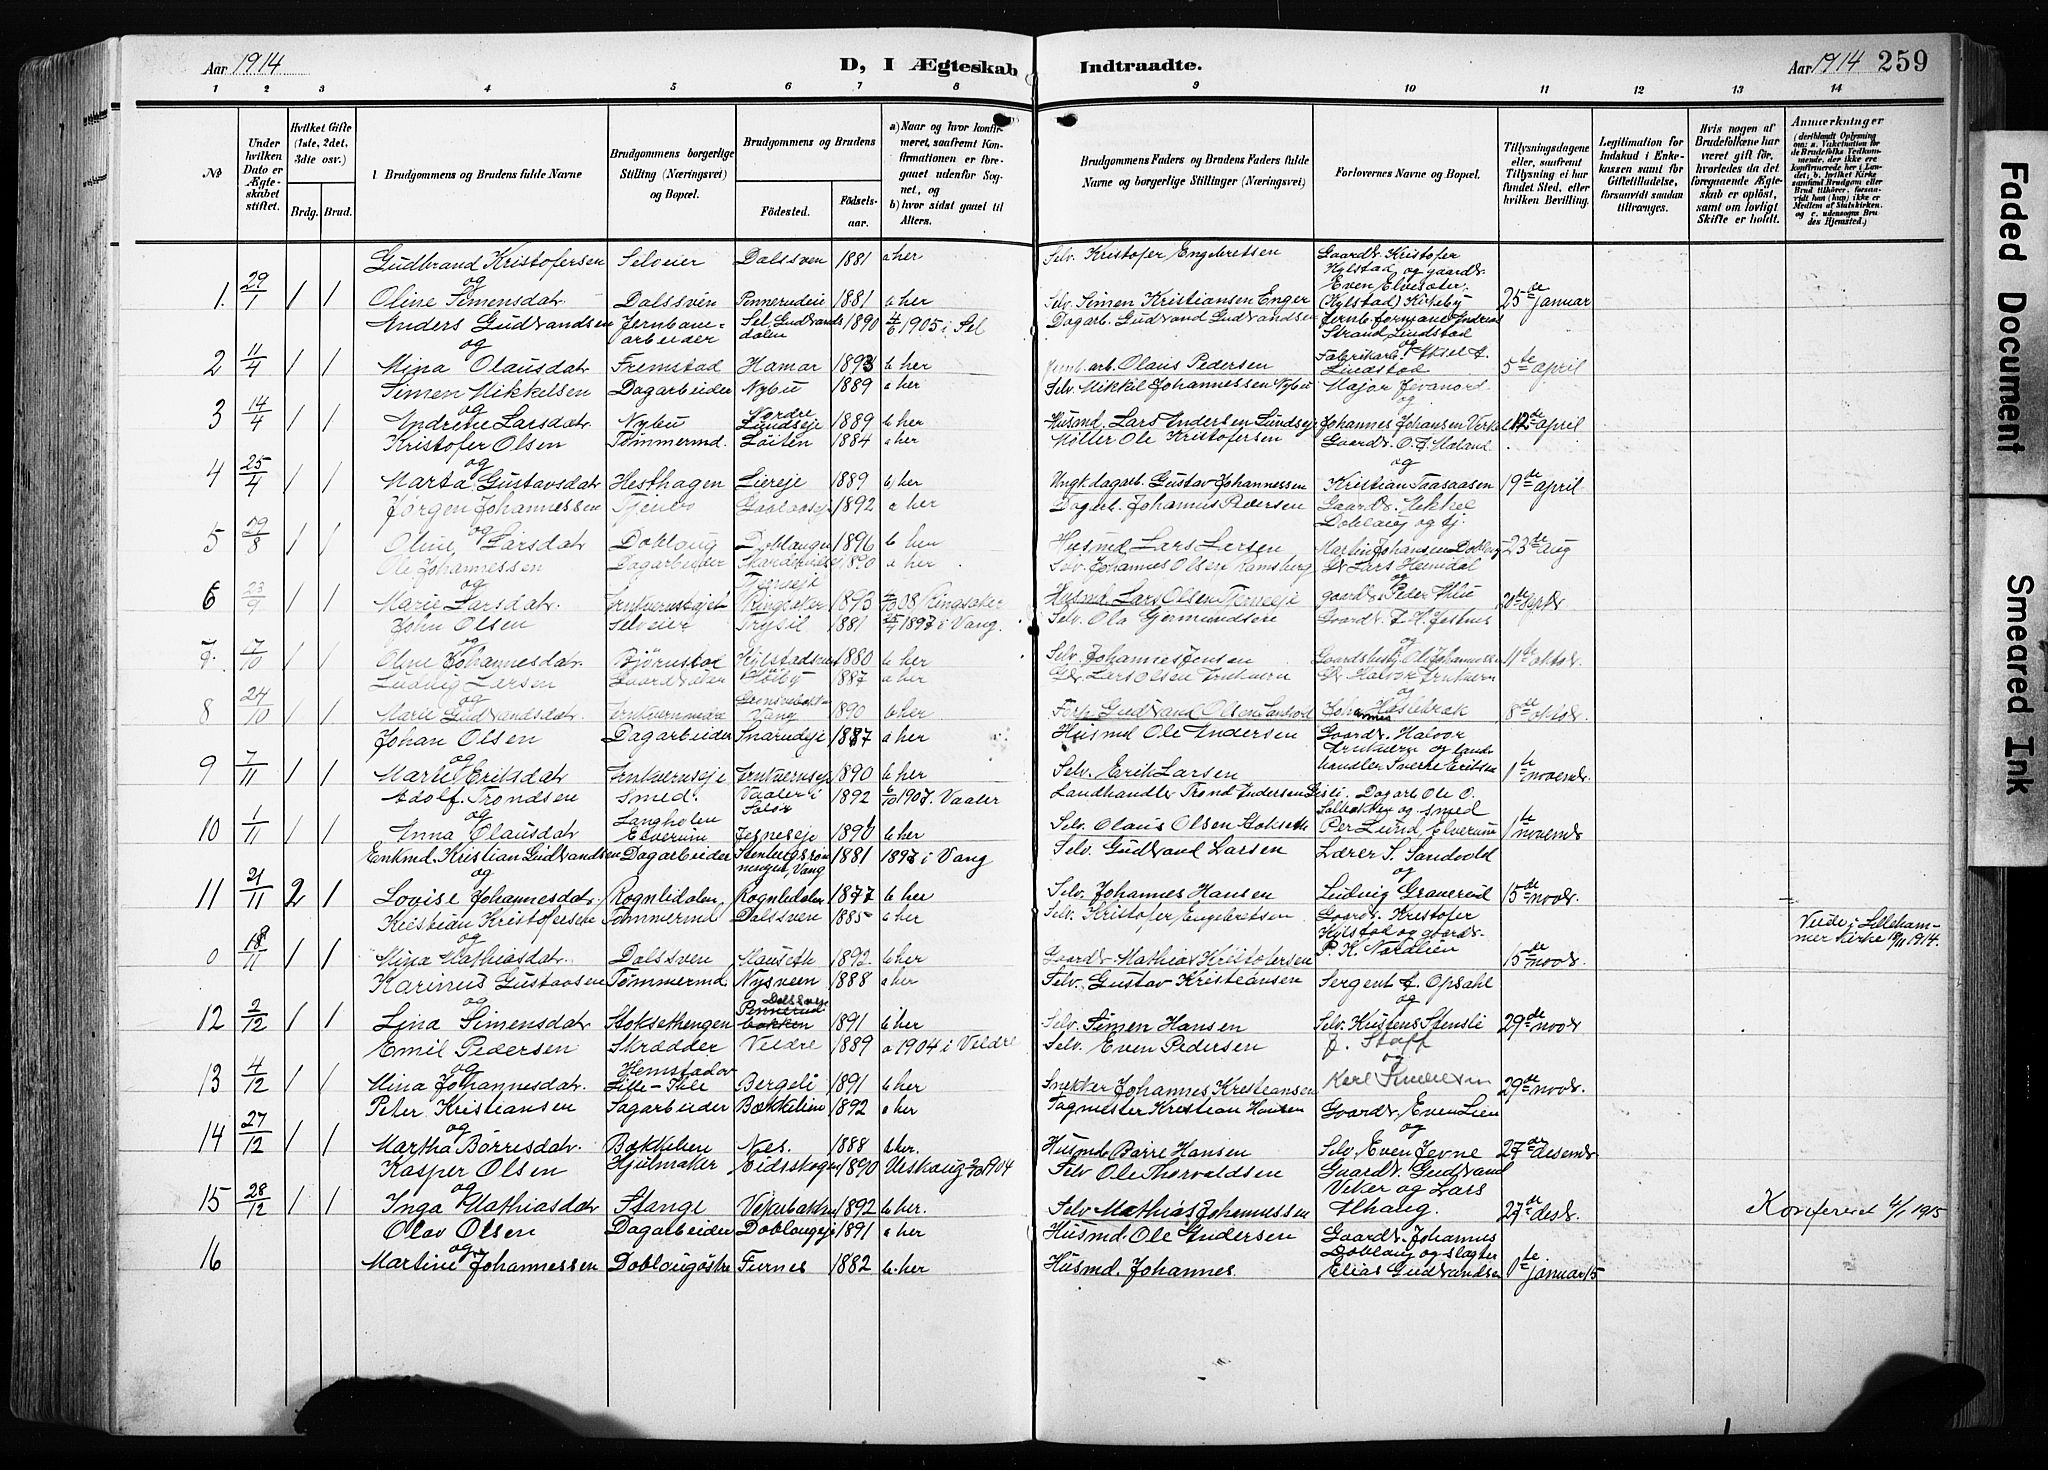 Aar 1914
D, I Ægteskab Indtraadte.
Aar 1914 259
1 2 3 4 5 6 7 8 9 10 11 12 13 14
No
Under hvilken Dato er Ægteskabet stiftet.
Hvilket Gifte (1ste, 2det, 3dte osv.)
Brdg. Brud.
Brudgommens og Brudens fulde Navne
Brudgommens borgerlige Stilling (Næringsvei) og Bopæl.
Brudgommens og Brudens
Fødested.
Fødselsaar.
a) Naar og hvor konfirmeret, saafremt Konfirmationen er foregaaet udenfor Sognet, og
b) hvor sidst gaaet til Alters.
Brudgommens Faders og Brudens Faders fulde Navne og borgerlige Stillinger (Næringsvei)
Forlovernes Navne og Bopæl.
Tillysningsdagene eller, saafremt Tillysning ei har fundet Sted, efter hvilken Bevilling.
Legitimation for Indskud i Enkekassen samt for Giftetilladelse, forsaavidt saadan tiltrænges.
Hvis nogen af Brudefolkene har været gift før, hvorledes da det foregaaende Ægteskab er opløst, samt om lovligt Skifte er holdt.
Anmærkninger
Gudbrand Kristofersen Selveier Dalssven 1881 a her Selv. Kristofer Engebretsen Gaardbr. Kristofer
og Kylstad og gaardbr.
1. 29/1 1 1 Oline Simensdatr. Dalssven Pennerudeie 1881 b her Selv. Simen Kristiansen Enger (Kylstad) Kirkeby 25de januar
Anders Gudbrandsen Jernbanearbeider Sel, Gudbrandsdalen 1890 4/6 1905 i Sel Dagarb. Gudbrand Gudbrandsen Jernb.formand Andreas
og Strand Lundstad
2 11/4 1 1 Mina Olausdatr Fremstad Hamar 1893 b her Olaus Pedersen Fabrikarb. Aksel A. Lundstad 5te april
Simen Mikkelsen Dagarbeider Nybu 1889 a her Selv. Mikkel Johannessen Nybu Major Jevanord
og
3 14/4 1 1 Andrene Larsdatr. Nybu Nordre Lundseje 1889 b her Husmd. Lars Andersen Lundseje Johannes Johansen 12de april
Kristofer Olsen Tømmermd. Løiten 1884 a her Møller Ole Kristofersen Gaardbr. O. A. Høland
og
4 25/4 1 1 Marta Gustavsdatr Hesthagen Liereje 1889 b her Ungk. dagarb. Gustav Johannessen Kristian Taasaasen 19de april
Jørgen Johannessen 1892 a her Dagarb. Johannes Pedersen Gaardbr. Mikkel
og Doblaug og
5 29/8 1 1 Oline Larsdatr Doblaug 1896 b her Husmd. Lars Larsen Martin Johansen Doblaug 23de aug
Ole Johannessen Dagarbeider 1890 a her Selv. Johannes Olsen Ramsberg Gbr Lars Hemdal
og
6 23/9 1 1 Marie Larsdatr. Ringsaker 1893 08 Ringsaker Husmd. Lars Olsen gaardbr. Peder 20de septbr
John Olsen Selveier Trysil 1881 1897 i Vang Selv. Ola Germundsen Gaardbr. A. H. Jesnes
og
7. 7/10 1 1 Oline Johannesdatr Bjørnstad Kylstadsven 1880 b her Selv. Johannes Jensen Gaardsbest. Ole Johannessen 11te oktbr.
Ludvig Larsen Gaardbruker Høiby 1887 a her Gbr. Lars Olsen Gbr. Halvor
og
8 24/10 1 1 Marie Gudbrandsdatr. Vang 1890 b her Forp. Gudbrand Olsen Johannes 8de oktbr.
Johan Olsen Dagarbeider Snarudeje 1887 a her Husmd. Ole Andersen Gaardbr. Halvor
og og landhandler Sverre Eriksen
9 7/11 1 1 Marie Eriksdatr 1890 b her Selv. Erik Larsen 1te novembr.
Adolf Trondsen Smed. Vaaler i Solør 1892 6/10 1907. Vaaler Landhandler Trond Andersen Dagarb. Ole O.
og Solbakken og smed
10 1/11 1 1 Anna Olausdatr Langholen Elverum Jesneseje 1890 b her Selv. Olaus Olsen Stokseth Per Lund, Elverum 1te novembr
Enkmd. Kristian Gudbrandsen Dagarbeider Stenbergsrønningen, Vang 1881 1897 i Vang Selv. Gudbrand Larsen Lærer S. Sandvold
og og
11 21/11 2 1 Lovise Johannesdatr. Rognlidalen Rognlidalen 1877 b her Selv. Johannes Hansen Ludvig Gravervd 15de novbr.
Kristian Kristofersen Tømmermd Dalssven 1885 a her Selv. Kristofer Engebretsen Gaardbr. Kristofer Viede i Lillehammer kirke 18/11 1914.
og Kylstad og gaardbr.
0 18/11 1 1 Mina Mathiasdatr. Dalssven Mauseth 1892 b her Gaardbr. Mathias Kristofersen P. K. Nordlien 15de novbr.
Karinus Gustavsen Tømmermd. Nysveen 1888 a her Selv. Gustav Kristiansen Sergent A. Opsahl
og og
12 2/12 1 1 Lina Simensdatr Stoksethengen Dalssveje 1891 b her Selv. Simen Hansen Selv. Kristens Stensli 29de novbr
Emil Pedersen Skrædder Veldre 1889 a 1904 i Veldre Selv. Even Pedersen J. Staff
og og
13 4/12 1 1 Mina Johannesdatr. Hemstad ov Lille-Tule Bergeli 1891 b her Snekker Johannes Kristiansen Karl 29de novbr.
Peter Kristiansen Sagarbeider Bækkelien 1892 a her Tagmester Kristian Hansen Gaardbr. Even Lien
og og
14 27/12 1 1 Martha Børresdatr. Bækkelien Nes. 1888 b her. Husmd. Børre Hansen Selv. Even Jevne 27de desembr
Kasper Olsen Hjulmaker Eidsskogen 1890 Urskoug 2/10 1904 Selv Ole Thorvaldsen Gaardbr. Gudbrand
og Veker og Lars
15 28/12 1 1 Inga Mathiasdatr Stange Vekerbakken 1892 b her. Selv Mathias Johannessen Alhaug. 27de desbr. Konfereret 6/1 1915
Olav Olsen Dagarbeider Doblaugseje 1891 a her Husmd. Ole Andersen Gaardbr. Johannes
og Doblaug og slagter
16 Martine Johannessen Doblaugøstre Furnes 1882 b. her Husmd. Johannes. Elias Gudbrandsen januar 15
Faded Document
Smeared Ink